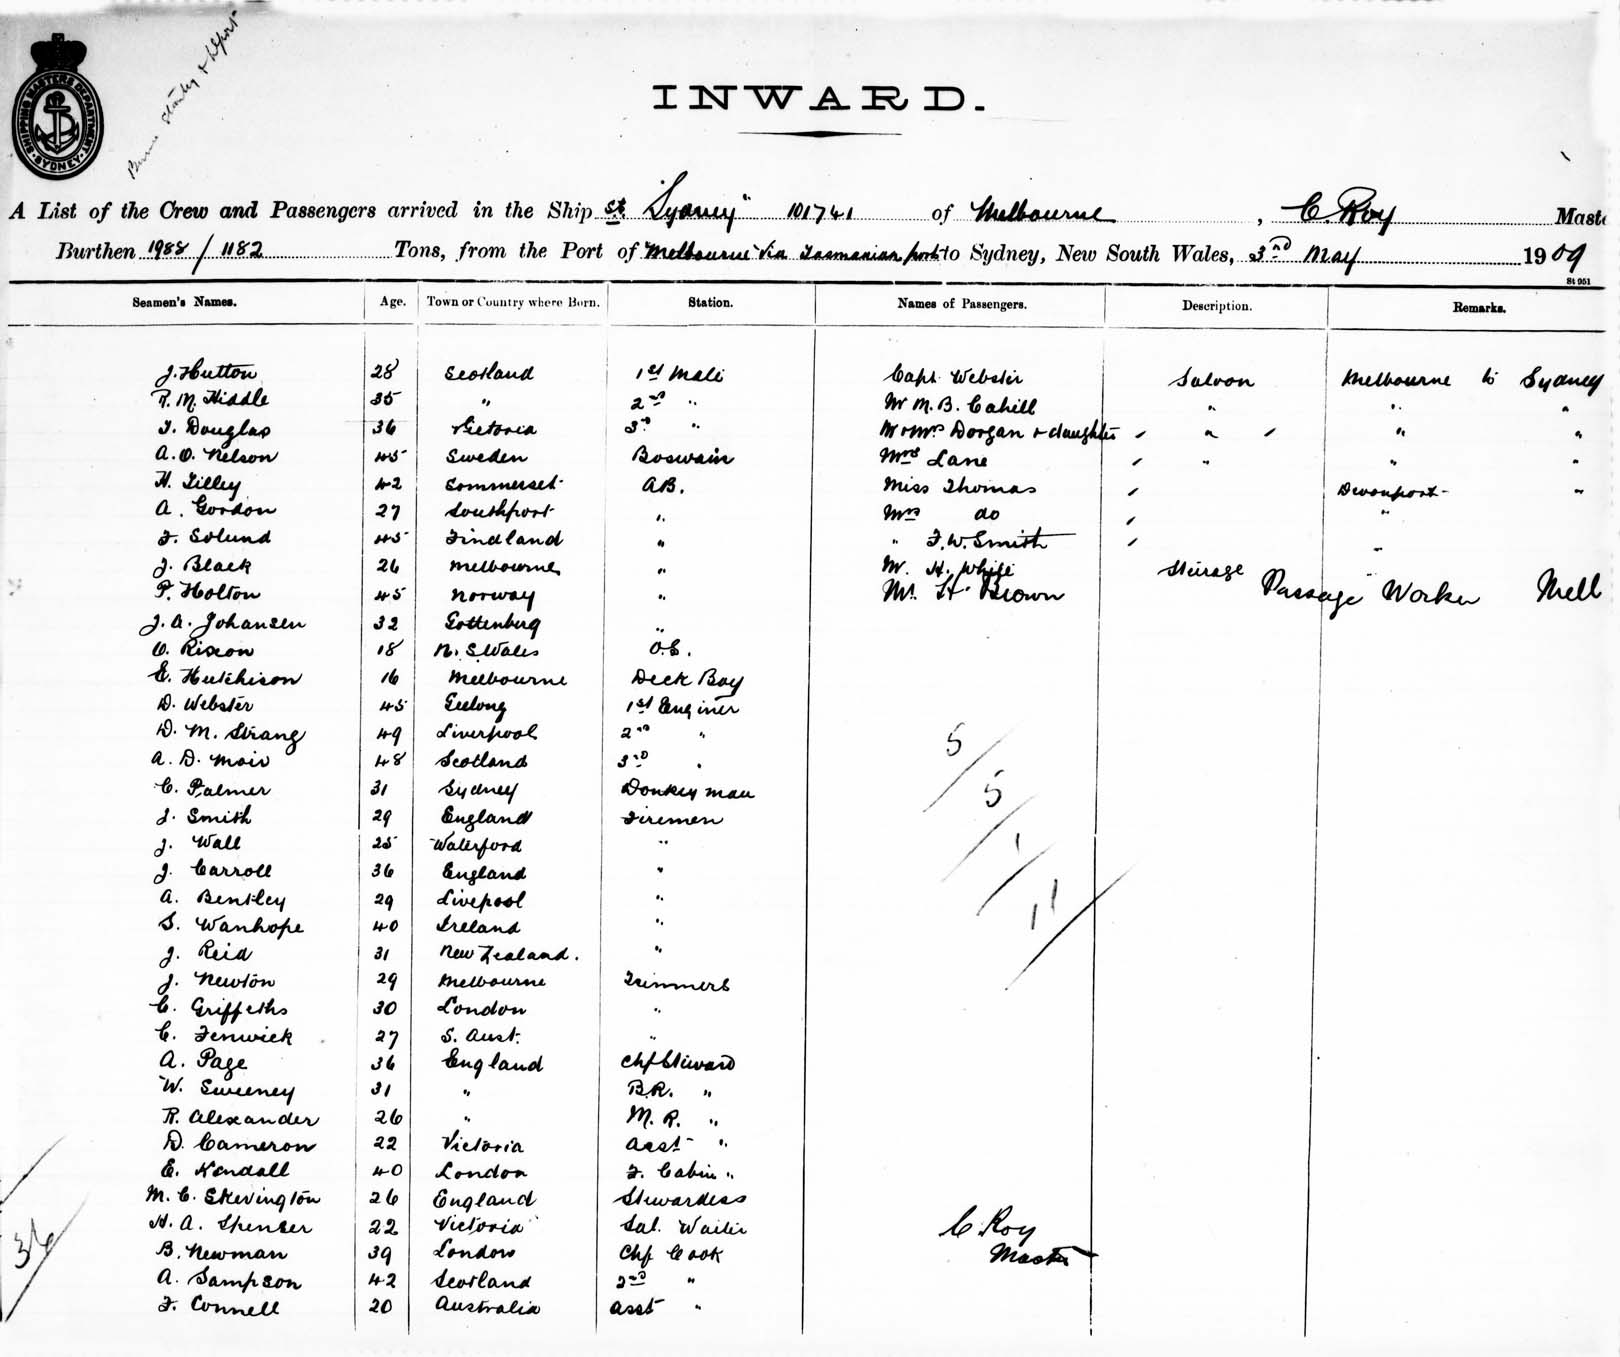 SHIPPING MASTERS DEPARTMENT. SYDNEY.
INWARD.
A List of the Crew and Passengers arrived in the Ship St. "Sydney" 101741 of Melbourne, C. Roy Maste
Burthen 1988/1182 Tons, from the Port of Melbourne via Tasmanian ports to Sydney, New South Wales, 3rd May 1909
St 951
Seamen's Names. Age. Town or Country where Born. Station. Names of Passengers. Description. Remarks.
J. Hutton 28 Scotland 1st Mate Capt. Webster Saloon Melbourne to Sydney
R. M. Kiddle 35 " 2nd " Mr M. B. Cahill " " "
T. Douglas 36 Victoria 3rd " Mr & Mrs Dorgan & daughter " " "
A. O. Nelson 45 Sweden Boswain Mrs Lane " " "
H. Tilley 42 Sommerset AB. Miss Thomas Devonport "
A. Gordon 27 Southport " Mrs do "
F. Solund 45 Findland " " F. W. Smith "
J. Black 26 Melbourne " Mr. H. White Steirage "
P. Holton 45 Norway " Mr. H. Brown Passage Worker Melb
J. A. Johansen 32 Gottenburg "
O. Rixon 18 N. S. Wales O.S.
E. Hutchison 16 Melbourne Deck Boy
D. Webster 45 Geelong 1st Enginer
D. M. Strang 49 Liverpool 2nd "
A. D. Moir 48 Scotland 3rd "
C. Palmer 31 Sydney Donkeyman
J. Smith 29 England Firemen
J. Wall 25 Waterford "
J. Carroll 36 England "
A. Bentley 29 Livepool "
S. Wanhope 40 Ireland "
J. Reid 31 New Zealand. "
J. Newton 29 Melbourne Trimmers
C. Griffeths 30 London "
C. Fenwick 27 S. Aust. "
A. Page 36 England Chf Steward
W. Sweeney 31 " B.R. "
R. Alexander 26 " M. R. "
D. Cameron 22 Victoria Asst "
E. Kendall 40 London F. Cabin "
M. C. Skevington 26 England Stewardess
H. A. Spenser 22 Victoria Sal. Waiter
B. Newman 39 London Chf Cook
A. Sampson 42 Scotland 2nd "
F. Connell 20 Australia Asst "
5/
5/
1/
11/
C. Roy
Master
36/